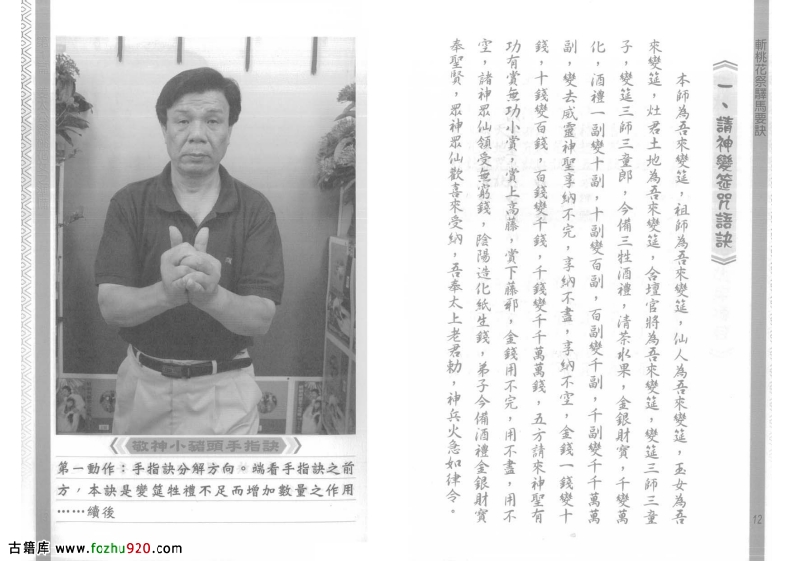 斬桃花祭驛馬要訣
一、請神變筵咒語訣
本師為吾來變筵，祖師為吾來變筵，仙人為吾來變筵，玉女為吾
來變筵，灶君土地為吾來變筵，合壇官將為吾來變筵，變筵三師三童
子，變筵三師三童郎，今備三牲酒禮，清茶水果，金銀財寶，千變萬
化，酒禮一副變十副，十副變百副，百副變千副，千副變千千萬萬
副，變去威靈神聖享納不完，享納不盡，享納不空，金錢一錢變十
錢，十錢變百錢，百錢變千錢，千錢變千千萬萬錢，五方請來神聖有
功有賞無功小賞，賞上高藤，賞下藤邪，金錢用不完，用不盡，用不
空，諸神眾仙領受無窮錢，陰陽造化紙生錢，弟子今備酒禮金銀財寶
奉聖賢，眾神眾仙歡喜來受納，吾奉太上老君勅，神兵火急如律令。
12
敬神小豬頭手指訣
第一動作：手指訣分解方向。端看手指訣之前
方，本訣是變筵牲禮不足而增加數量之作用
……續後
古籍库 www.fozhu920.com